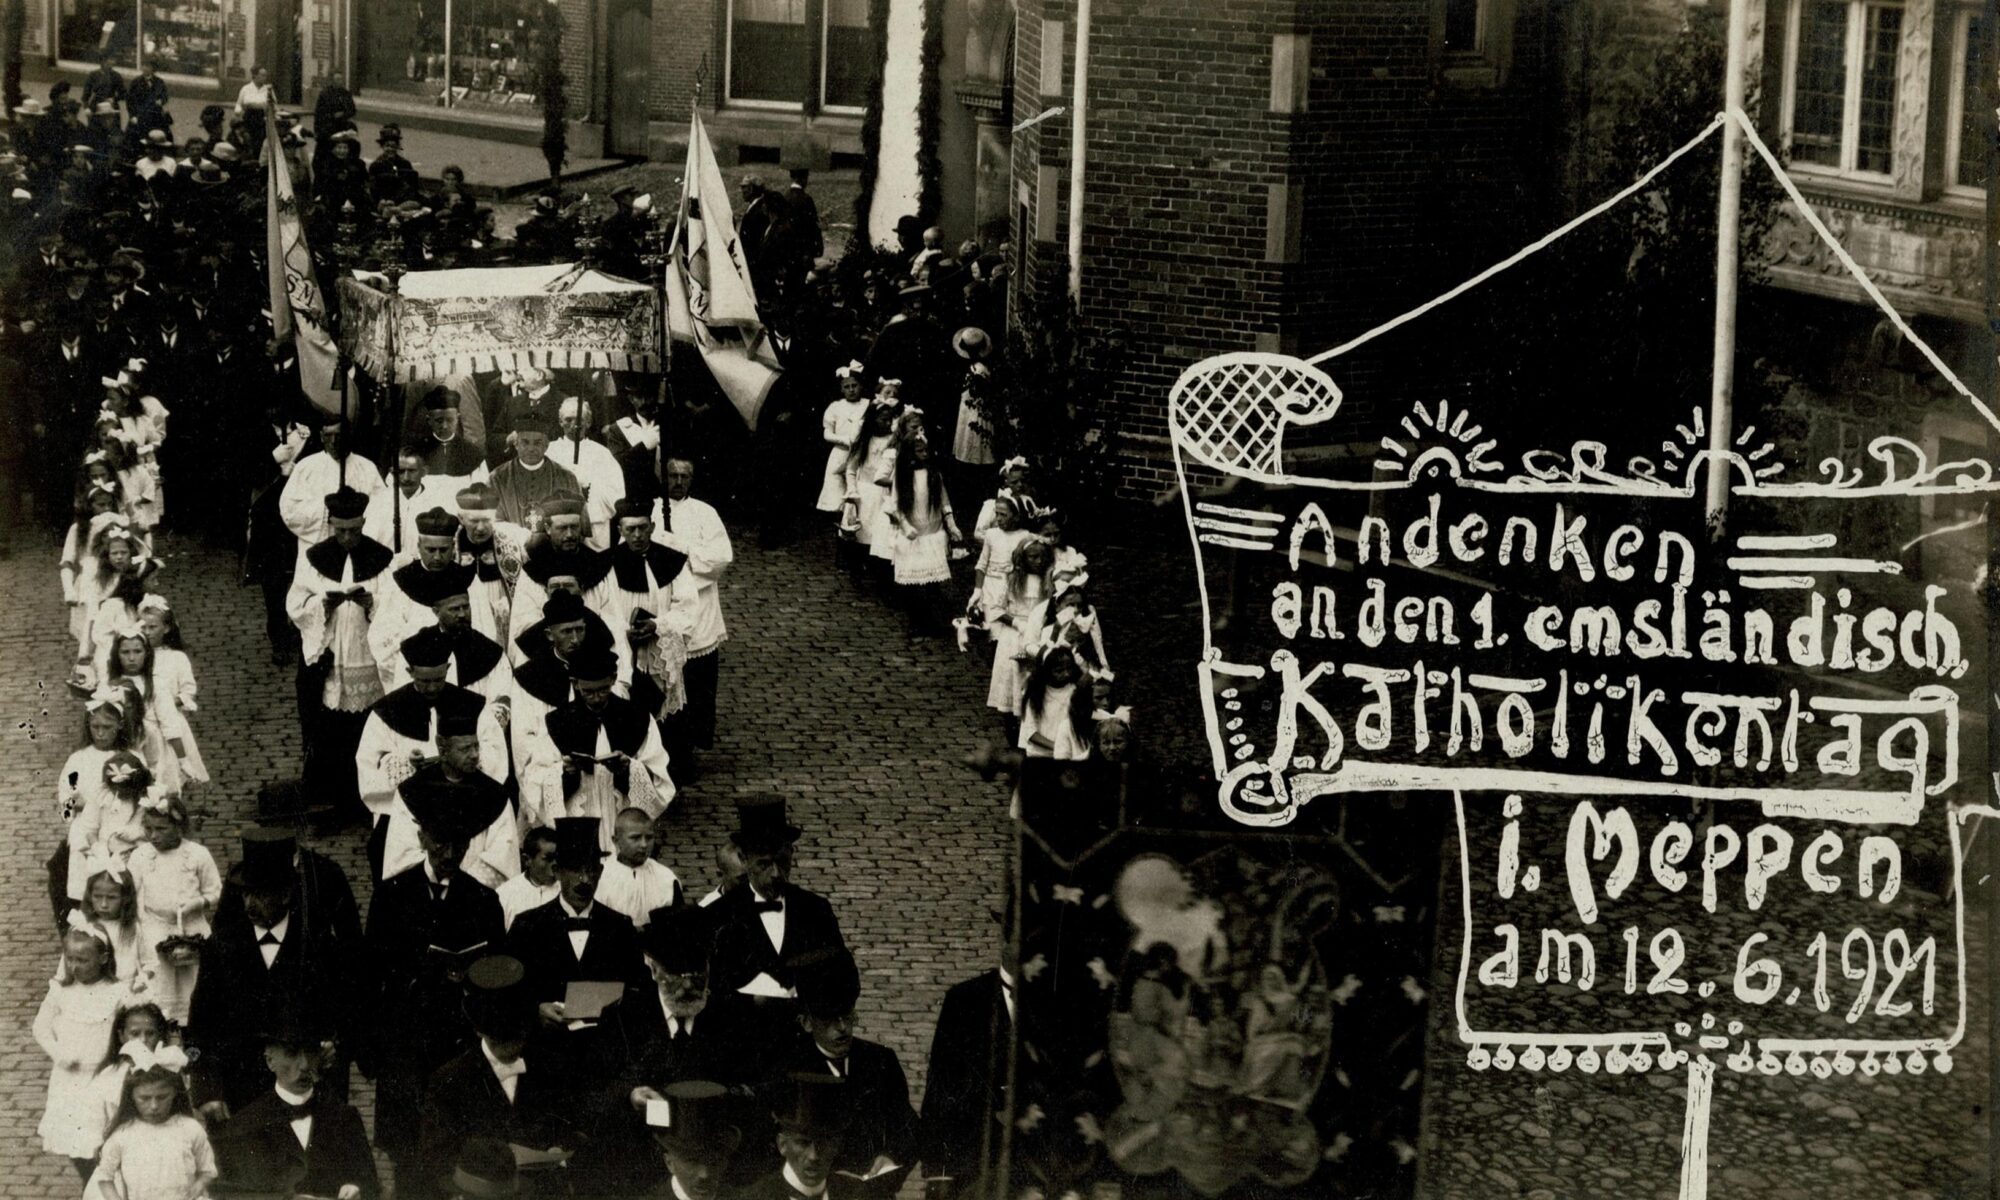 Andenken
an den 1. emsländisch.
Katholikentag
i. Meppen
am 12. 6. 1921